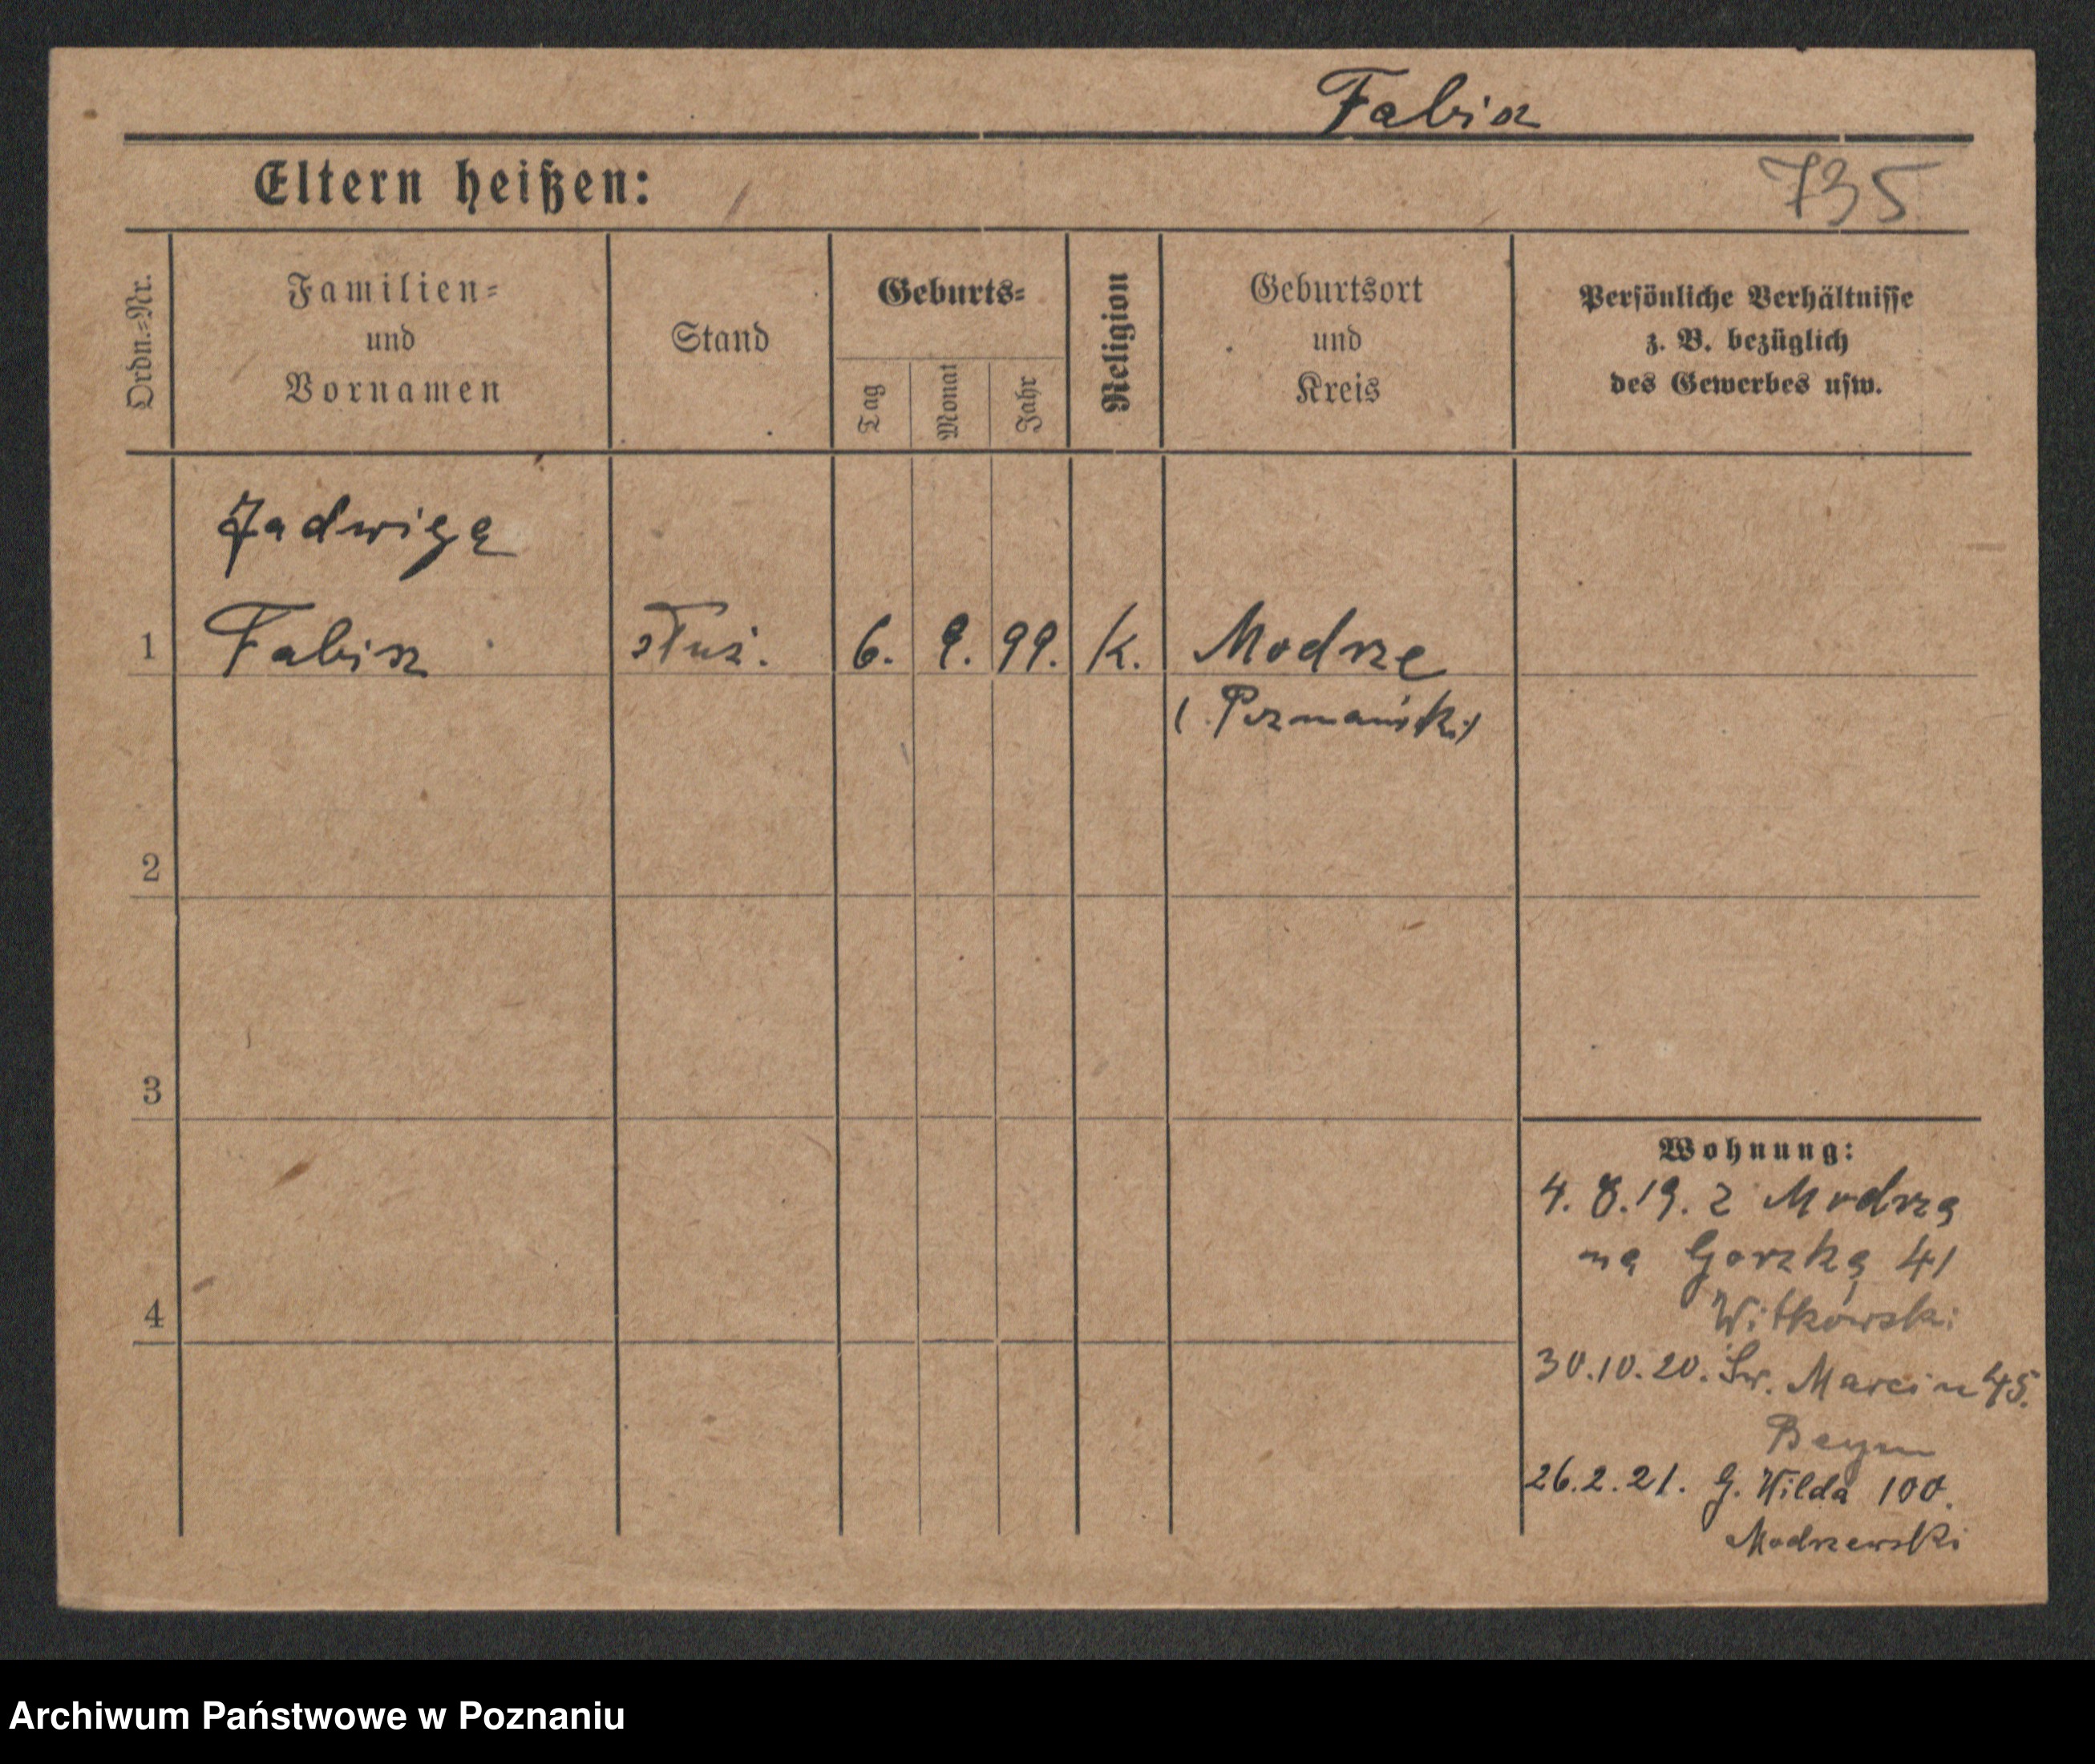 Fabisz
Eltern heißen:
735
Ordn.=Nr.
Familien=
und
Vornamen
Stand
Geburts=
Tag
Monat
Jahr
Religion
Geburtsort
und
Kreis
Persönliche Verhältnisse
z. B. bezüglich
des Gewerbes usw.
Jadwiga
1 Fabisz służ. 6. 9. 99. K. Modrze
(Poznański)
2
3
4
Wohnung:
4.8.19. z Modrza
na Gorzką 41
Witkowski
30.10.20. Św. Marcin 45.
Beym
26.2.21. G. Wilda 100.
Modrzewski
Archiwum Państwowe w Poznaniu